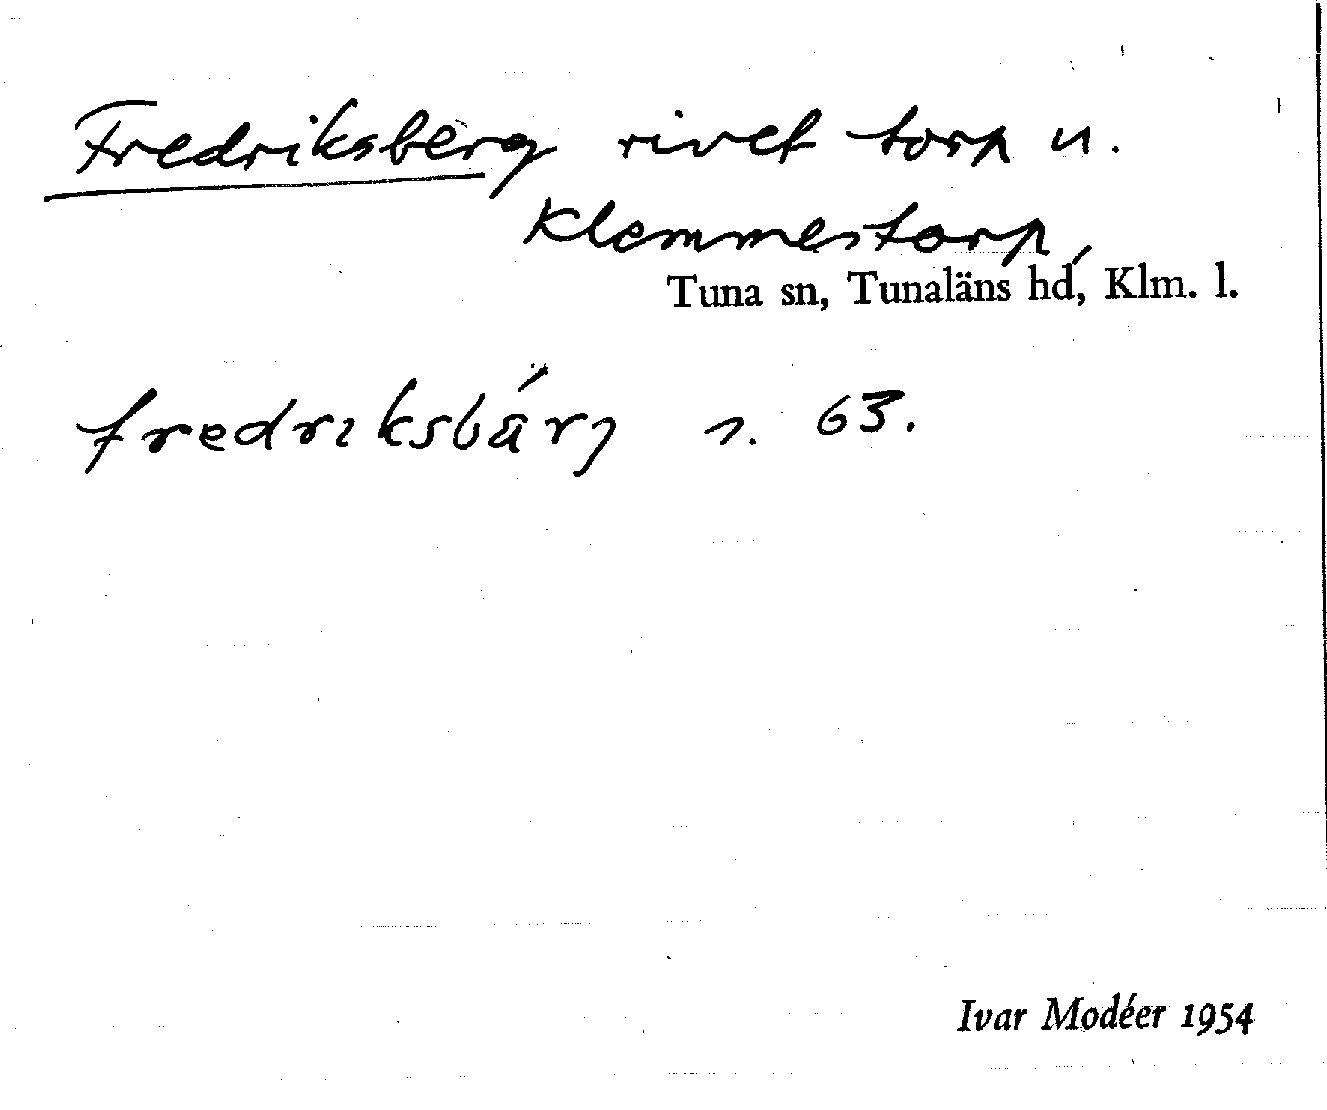 Fredriksberg rivet torp u.
Klemmestorp,
Tuna sn, Tunaläns hd, Klm. l.
fredriksbárj s. 63.
Ivar Modéer 1954